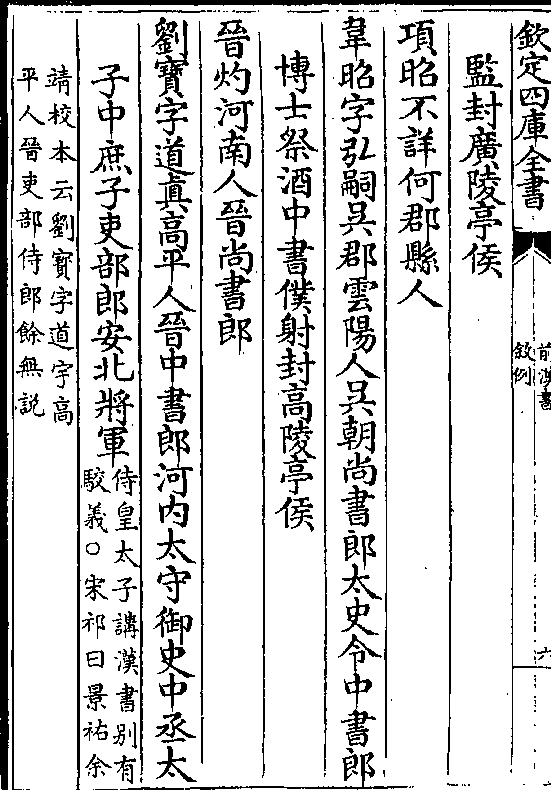 欽定四庫全書
前漢書
敘例
六
監封廣陵亭侯
項昭不詳何郡縣人
韋昭字弘嗣吳郡雲陽人吳朝尚書郎太史令中書郎
博士祭酒中書僕射封高陵亭侯
晉灼河南人晉尚書郎
劉寶字道真高平人晉中書郎河内太守御史中丞太
子中庶子吏部郎安北將軍侍皇太子講漢書别有
駮義○宋祁曰景祐余
靖校本云劉寳字道字高
平人晉吏部侍郎餘無説